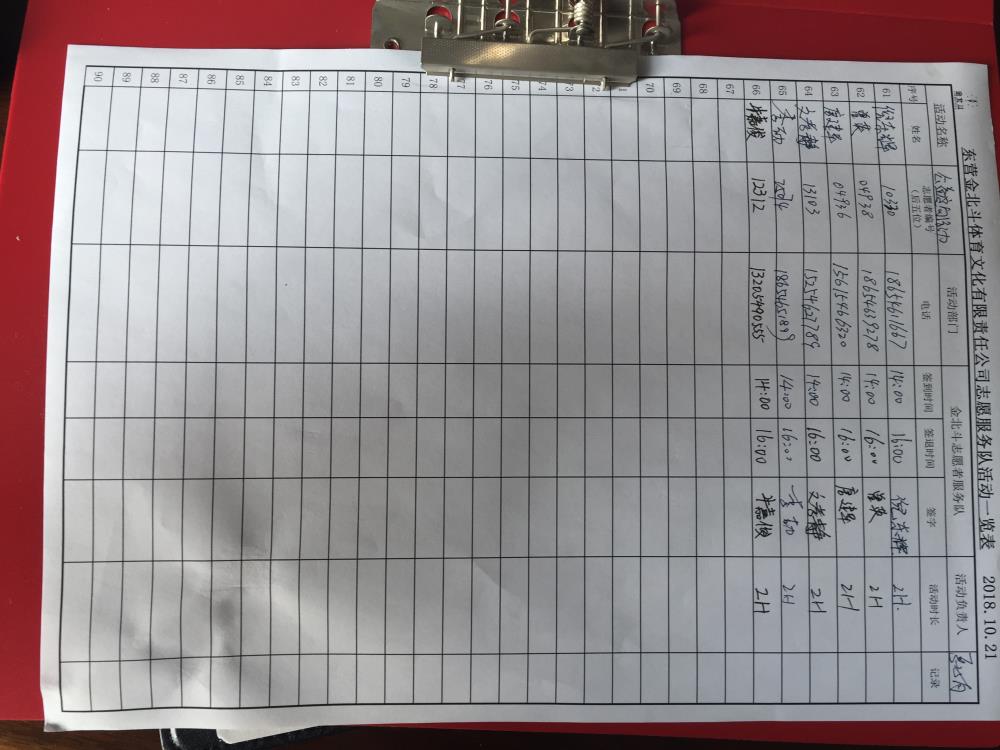 东营金北斗体育文化有限责任公司志愿服务队活动一览表 2018.10.21
活动名称 活动部门 金北斗志愿者服务队 活动负责人
序号 姓名 志愿者编号（后五位） 电话 签到时间 签退时间 签字 活动时长 记录
61 倪东辉 10330 18654661667 14:00 16:00 倪东辉 2H.
62 曾英 04938 18654639278 14:00 16:00 曾英 2H
63 唐建军 04936 15615466320 14:00 16:00 唐建军 2H
64 文秀静 13103 15254627789 14:00 16:00 文秀静 2H
65 李劲 18654651899 14:00 16:00 李劲 2H
66 12312 13205490555 14:00 16:00 2H
67
68
69
70
71
72
73
74
75
76
77
78
79
80
81
82
83
84
85
86
87
88
89
90